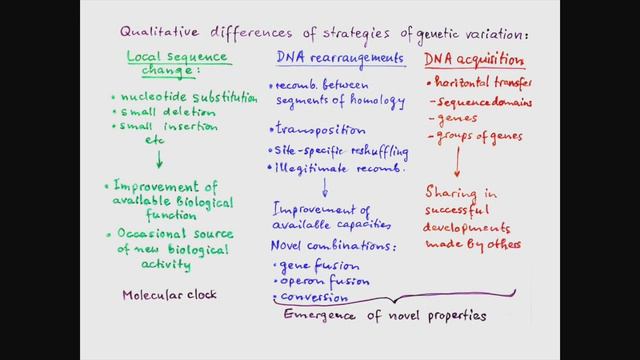 Qualitative differences of strategies of genetic variation:
Local sequence
change:
• nucleotide substitution
• small deletion
• small insertion
etc
• Improvement of
available biological
function
• Occasional source
of new biological
activity
Molecular clock
DNA rearrangements
• recomb. between
segments of homology
• transposition
• site-specific reshuffling
• illegitimate recomb.
Improvement of
available capacities
Novel combinations:
• gene fusion
• operon fusion
• conversion
DNA acquisition
• horizontal transfer
- sequence domains
- genes
- groups of genes
Sharing in
successful
developments
made by others
Emergence of novel properties